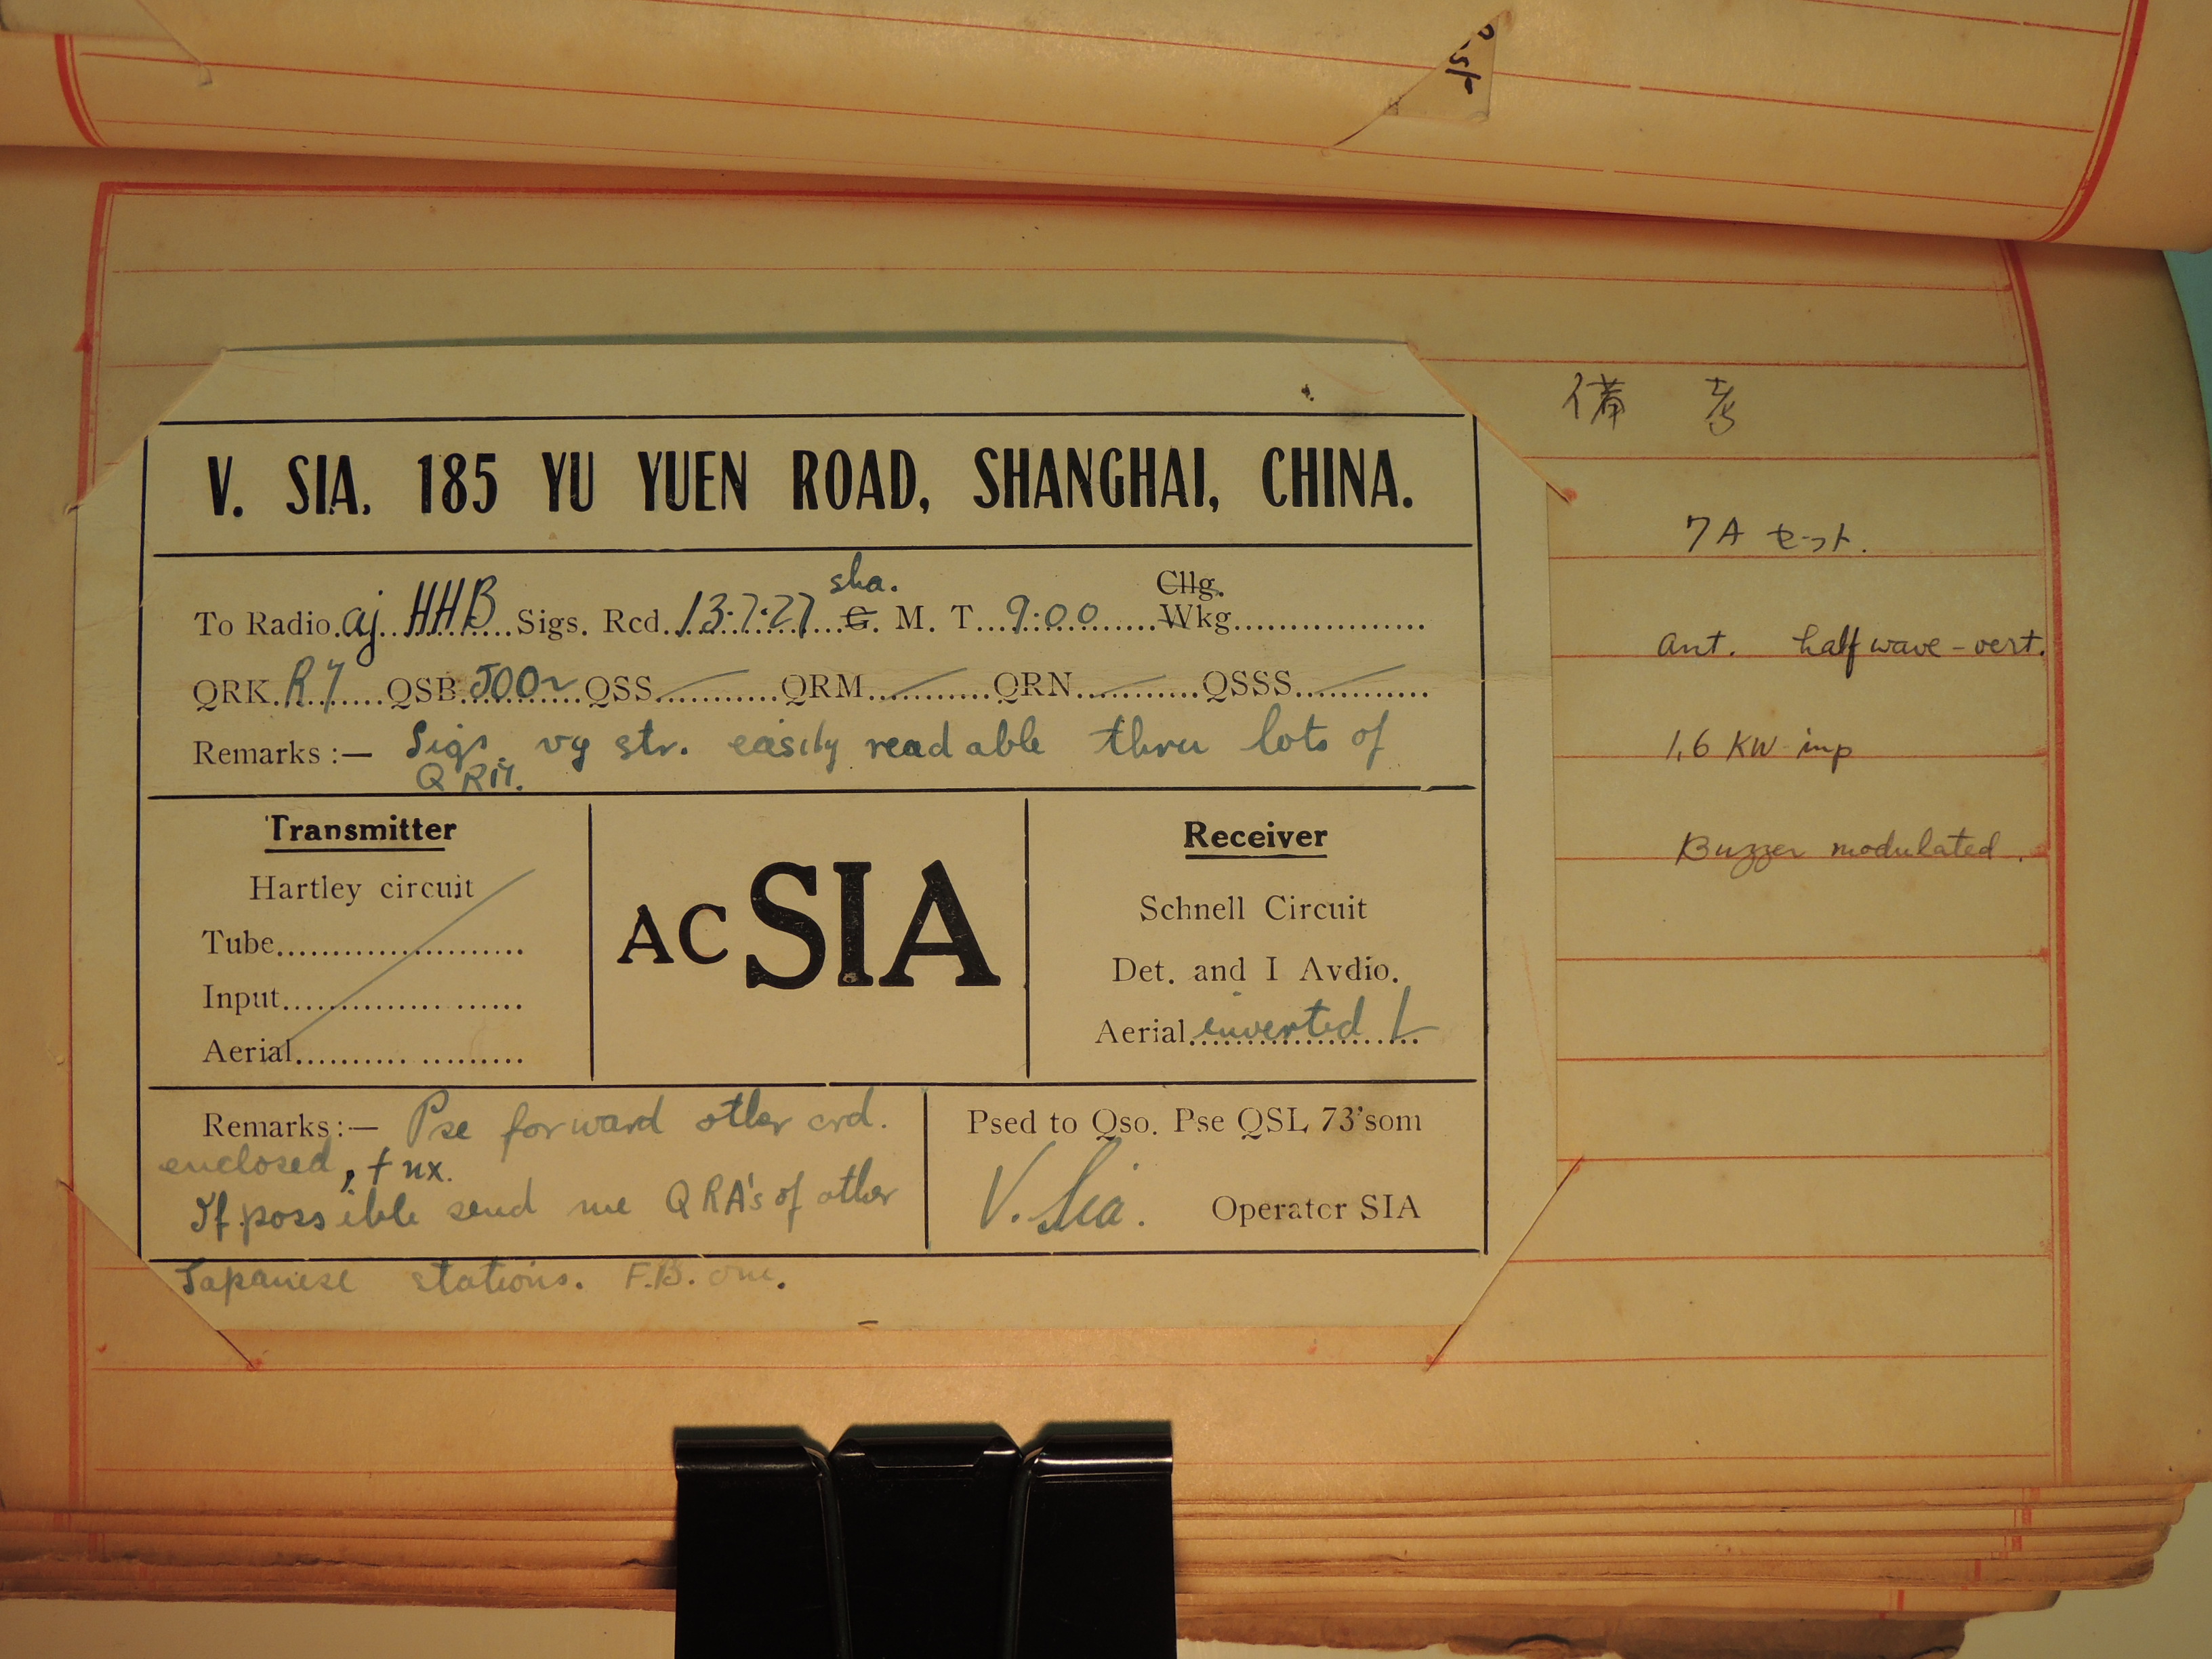 V. SIA. 185 YU YUEN ROAD, SHANGHAI, CHINA.
sha. Cllg.
To Radio. aj HHB Sigs. Rcd. 13.7.27 G. M. T. 9:00 Wkg.
QRK. R7 QSB. 500~ QSS QRM QRN QSSS
Remarks :— Sigs. vy str. easily readable thru lots of
QRM.
Transmitter
Hartley circuit
Tube
Input
Aerial
AC SIA
Receiver
Schnell Circuit
Det. and I Avdio.
Aerial inverted L
Remarks :— Pse forward other crd.
enclosed, tnx.
If possible send me QRA's of other
Japanese stations. F.B. om.
Psed to Qso. Pse QSL 73'som
V. Sia. Operator SIA
備 考
7A セット.
Ant. half wave-vert.
1.6 KW inp
Buzzer modulated.